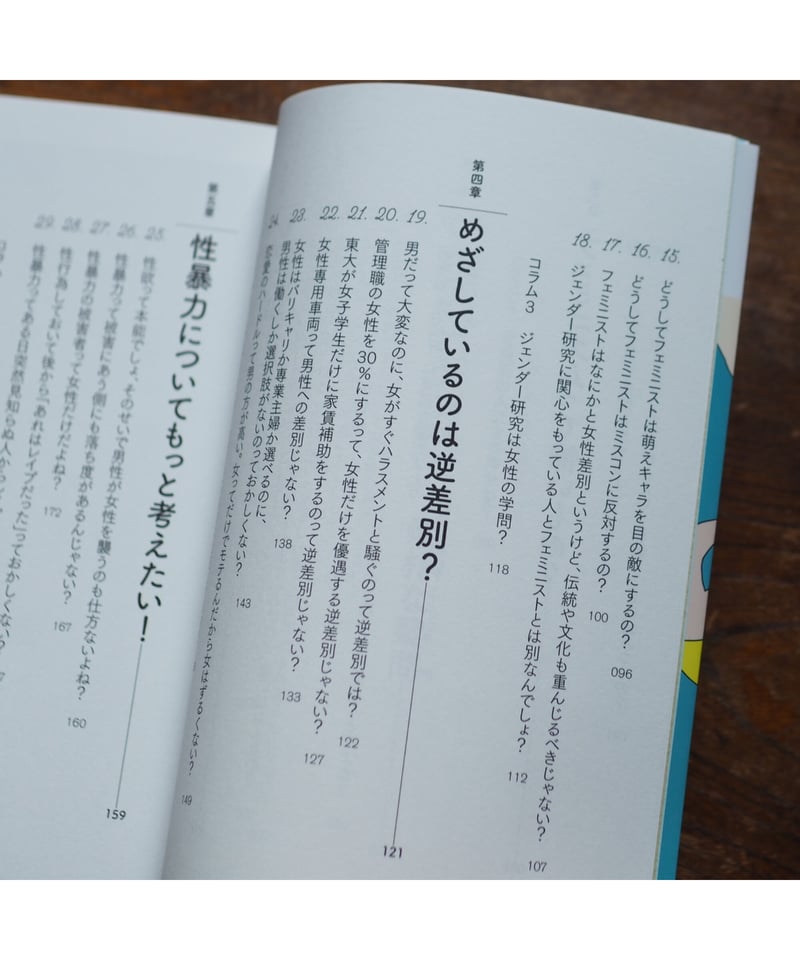 15. どうしてフェミニストは萌えキャラを目の敵にするの? 096
16. どうしてフェミニストはミスコンに反対するの? 100
17. フェミニストはなにかと女性差別というけど、伝統や文化も重んじるべきじゃない? 107
18. ジェンダー研究に関心をもっている人とフェミニストとは別なんでしょ? 112
コラム3 ジェンダー研究は女性の学問? 118
第四章
めざしているのは逆差別? 121
19. 男だって大変なのに、女がすぐハラスメントと騒ぐのって逆差別では? 122
20. 管理職の女性を30%にするって、女性だけを優遇する逆差別じゃない? 127
21. 東大が女子学生だけに家賃補助をするのって逆差別じゃない? 133
22. 女性専用車両って男性への差別じゃない? 138
23. 女性はバリキャリか専業主婦か選べるのに、
男性は働くしか選択肢がないのっておかしくない? 143
24. 恋愛のハードルって男の方が高い。女ってだけでモテるんだから女はずるくない? 149
第五章
性暴力についてもっと考えたい! 159
25. 性欲って本能でしょ、そのせいで男性が女性を襲うのも仕方ないよね? 160
26. 性暴力って被害にあう側にも落ち度があるんじゃない? 167
27. 性暴力の被害者って女性だけだよね? 172
28. 性行為しておいて後から「あれはレイプだった」っておかしくない?
29. 性暴力ってある日突然見知らぬ人から